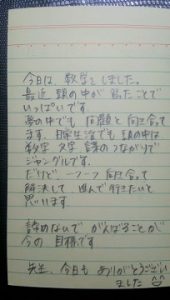 今日は 数学をしました。
最近 頭の中が 習たことで
いっぱいです。
夢の中でも 問題と向き合って
ます。日常生活でも 頭の中は
数字 文字 語のつながりで
ジャングルです。
だけど、一つ一つ 向き合って
解決して 進んで行きたいと
思います
諦めないで がんばることが
今の 目標です
先生、今日も ありがとうござい
ました